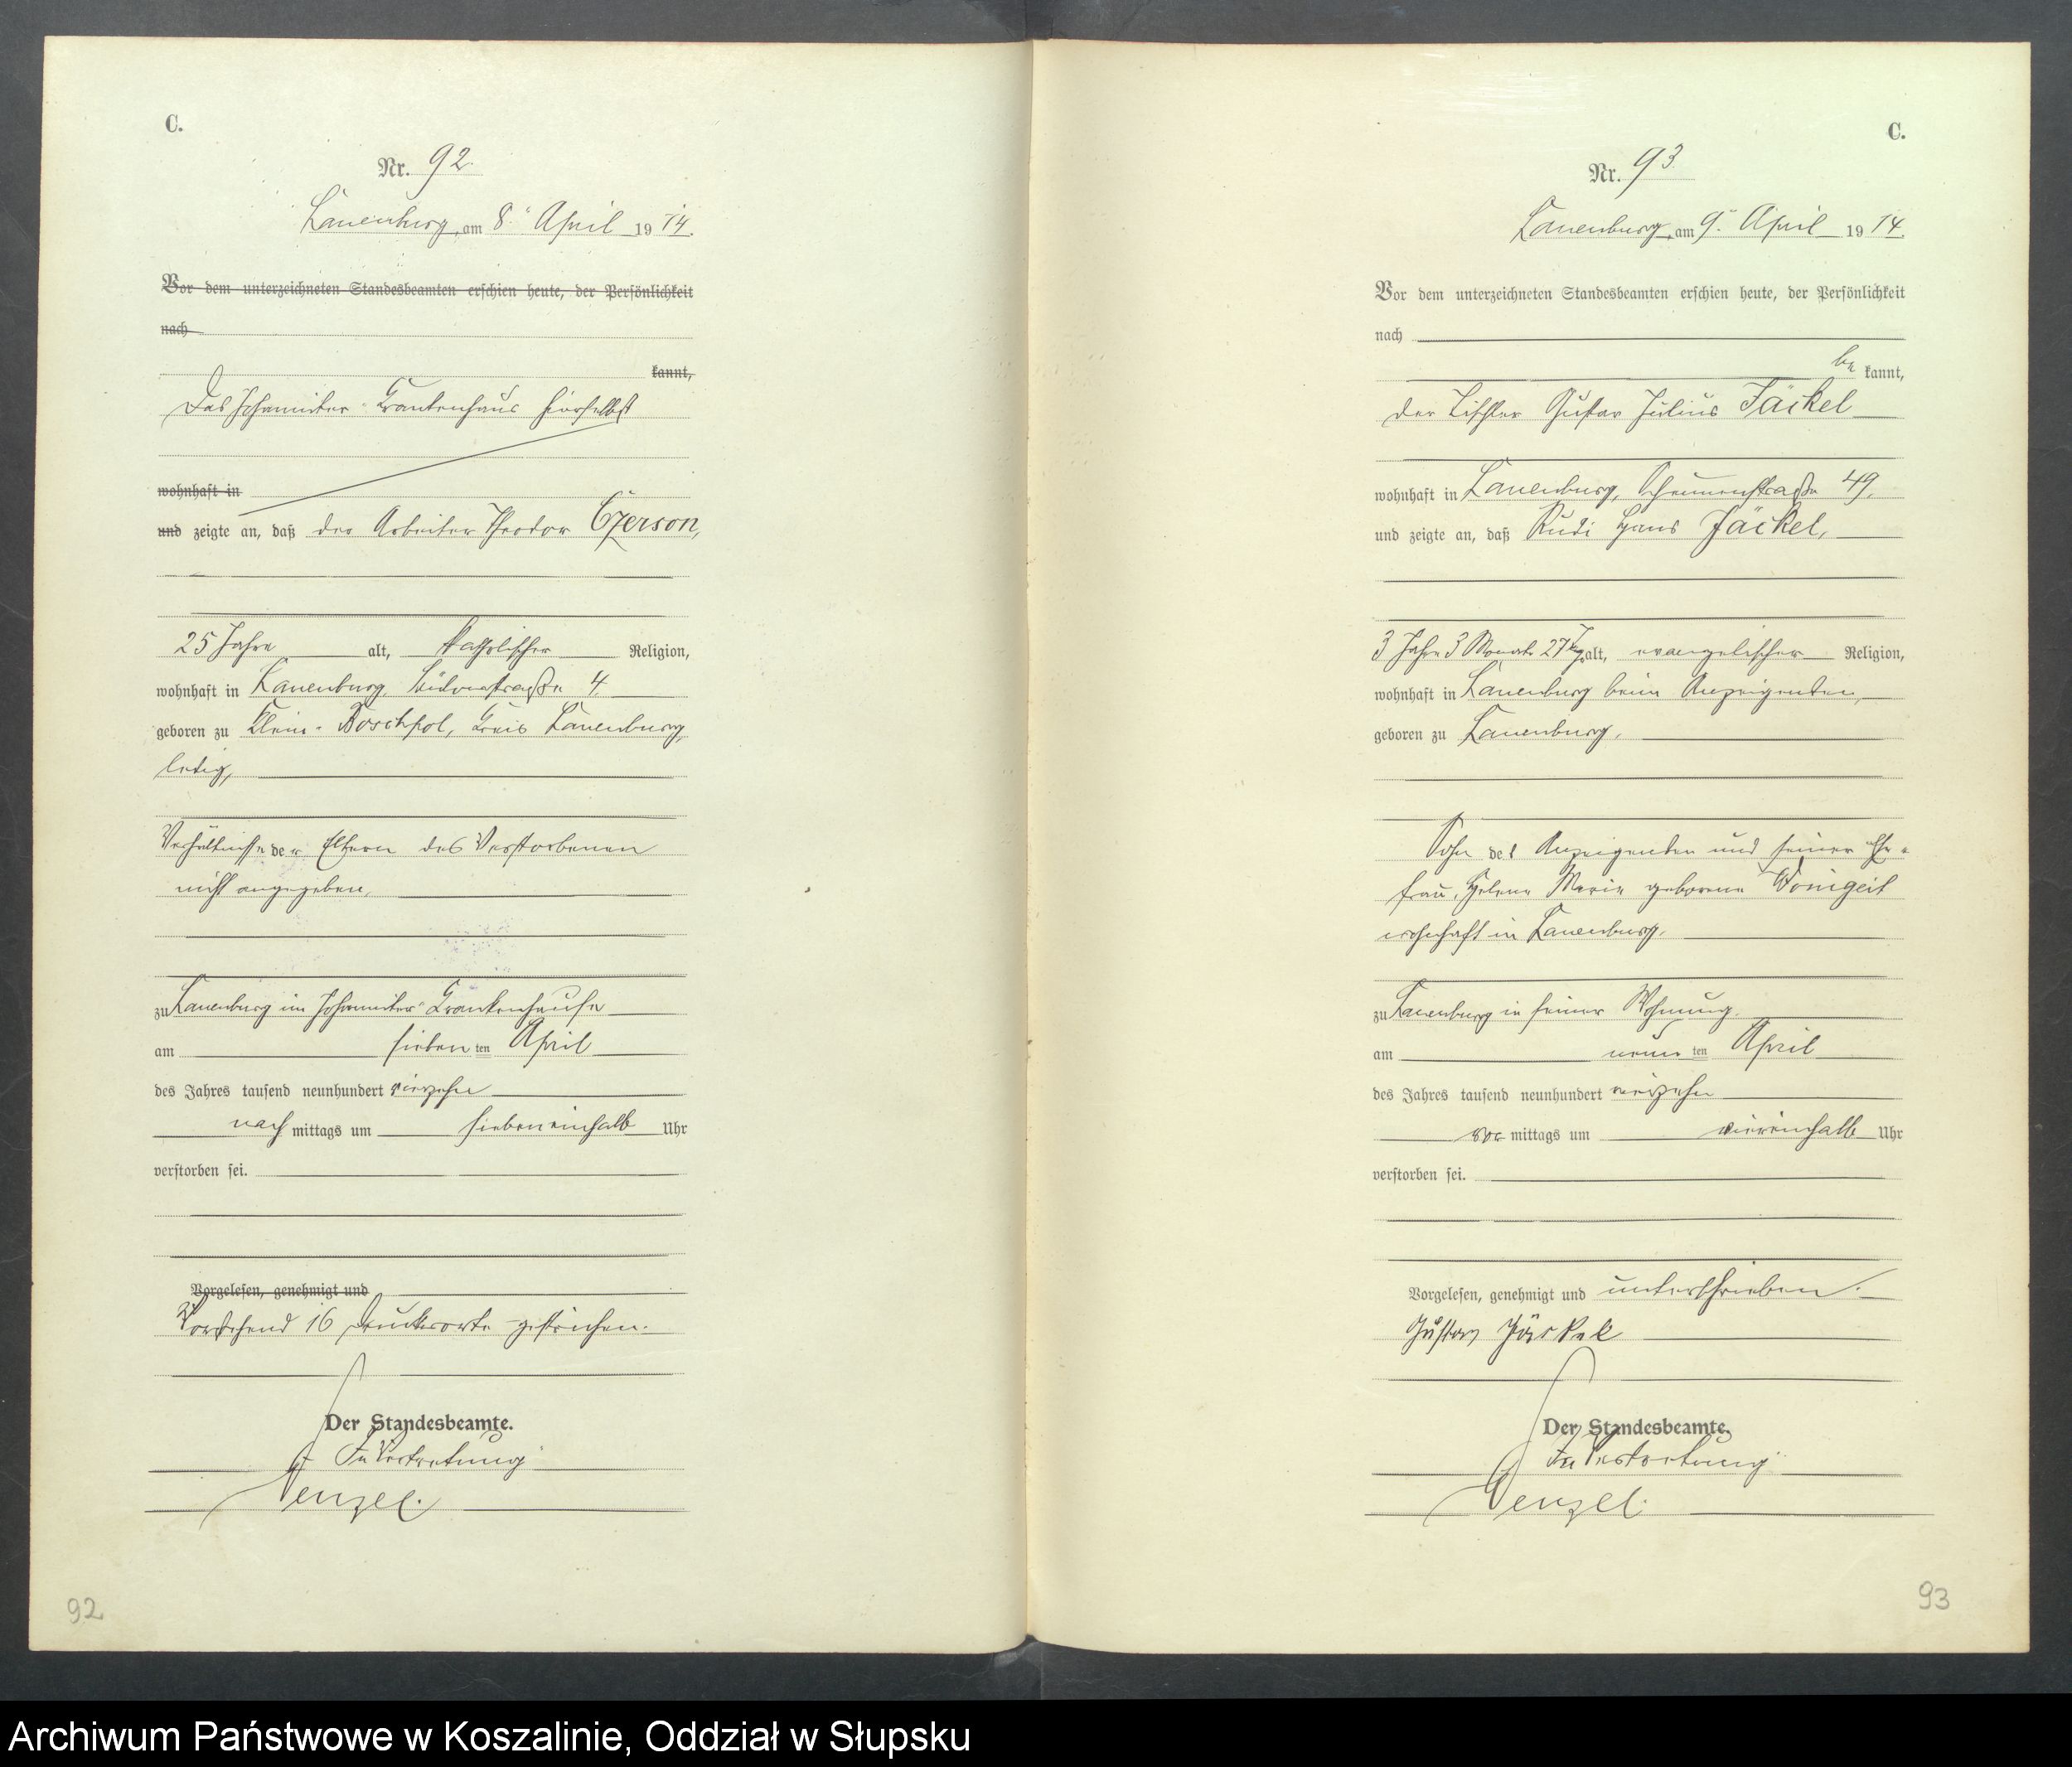 C.
Nr. 92.
Lauenburg, am 8. April 1914.
Vor dem unterzeichneten Standesbeamten erschien heute, der Persönlichkeit
nach
kannt,
Das Johanniter-Krankenhaus hierselbst
wohnhaft in
und zeigte an, daß der Arbeiter Theodor Czerson,
25 Jahre alt, katholischer Religion,
wohnhaft in Lauenburg, 4,
geboren zu Klein-Boschpol, Kreis Lauenburg,
ledig,
Verhältnisse der Eltern des Verstorbenen
nicht angegeben,
zu Lauenburg im Johanniter-Krankenhause
am siebenten April
des Jahres tausend neunhundert vierzehn
nachmittags um siebeneinhalb Uhr
verstorben sei.
Vorgelesen, genehmigt und
Vorstehend 16 Druckworte gestrichen.
Der Standesbeamte.
In Vertretung
Wenzel.
92
C.
Nr. 93
Lauenburg, am 9. April 1914.
Vor dem unterzeichneten Standesbeamten erschien heute, der Persönlichkeit
nach
bekannt,
der Tischler Gustav Julius Jäckel
wohnhaft in Lauenburg, Scheunenstraße 49,
und zeigte an, daß Rudi Hans Jäckel,
3 Jahre 3 Monate 27 Tg alt, evangelischer Religion,
wohnhaft in Lauenburg beim Anzeigenden,
geboren zu Lauenburg,
Sohn des Anzeigenden und seiner Ehe-
frau, Helene Marie geborene Wonigeit
wohnhaft in Lauenburg,
zu Lauenburg in seiner Wohnung
am neunten April
des Jahres tausend neunhundert vierzehn
vormittags um viereinhalb Uhr
verstorben sei.
Vorgelesen, genehmigt und unterschrieben.
Gustav Jäckel
Der Standesbeamte.
In Vertretung
Wenzel.
93
Archiwum Państwowe w Koszalinie, Oddział w Słupsku